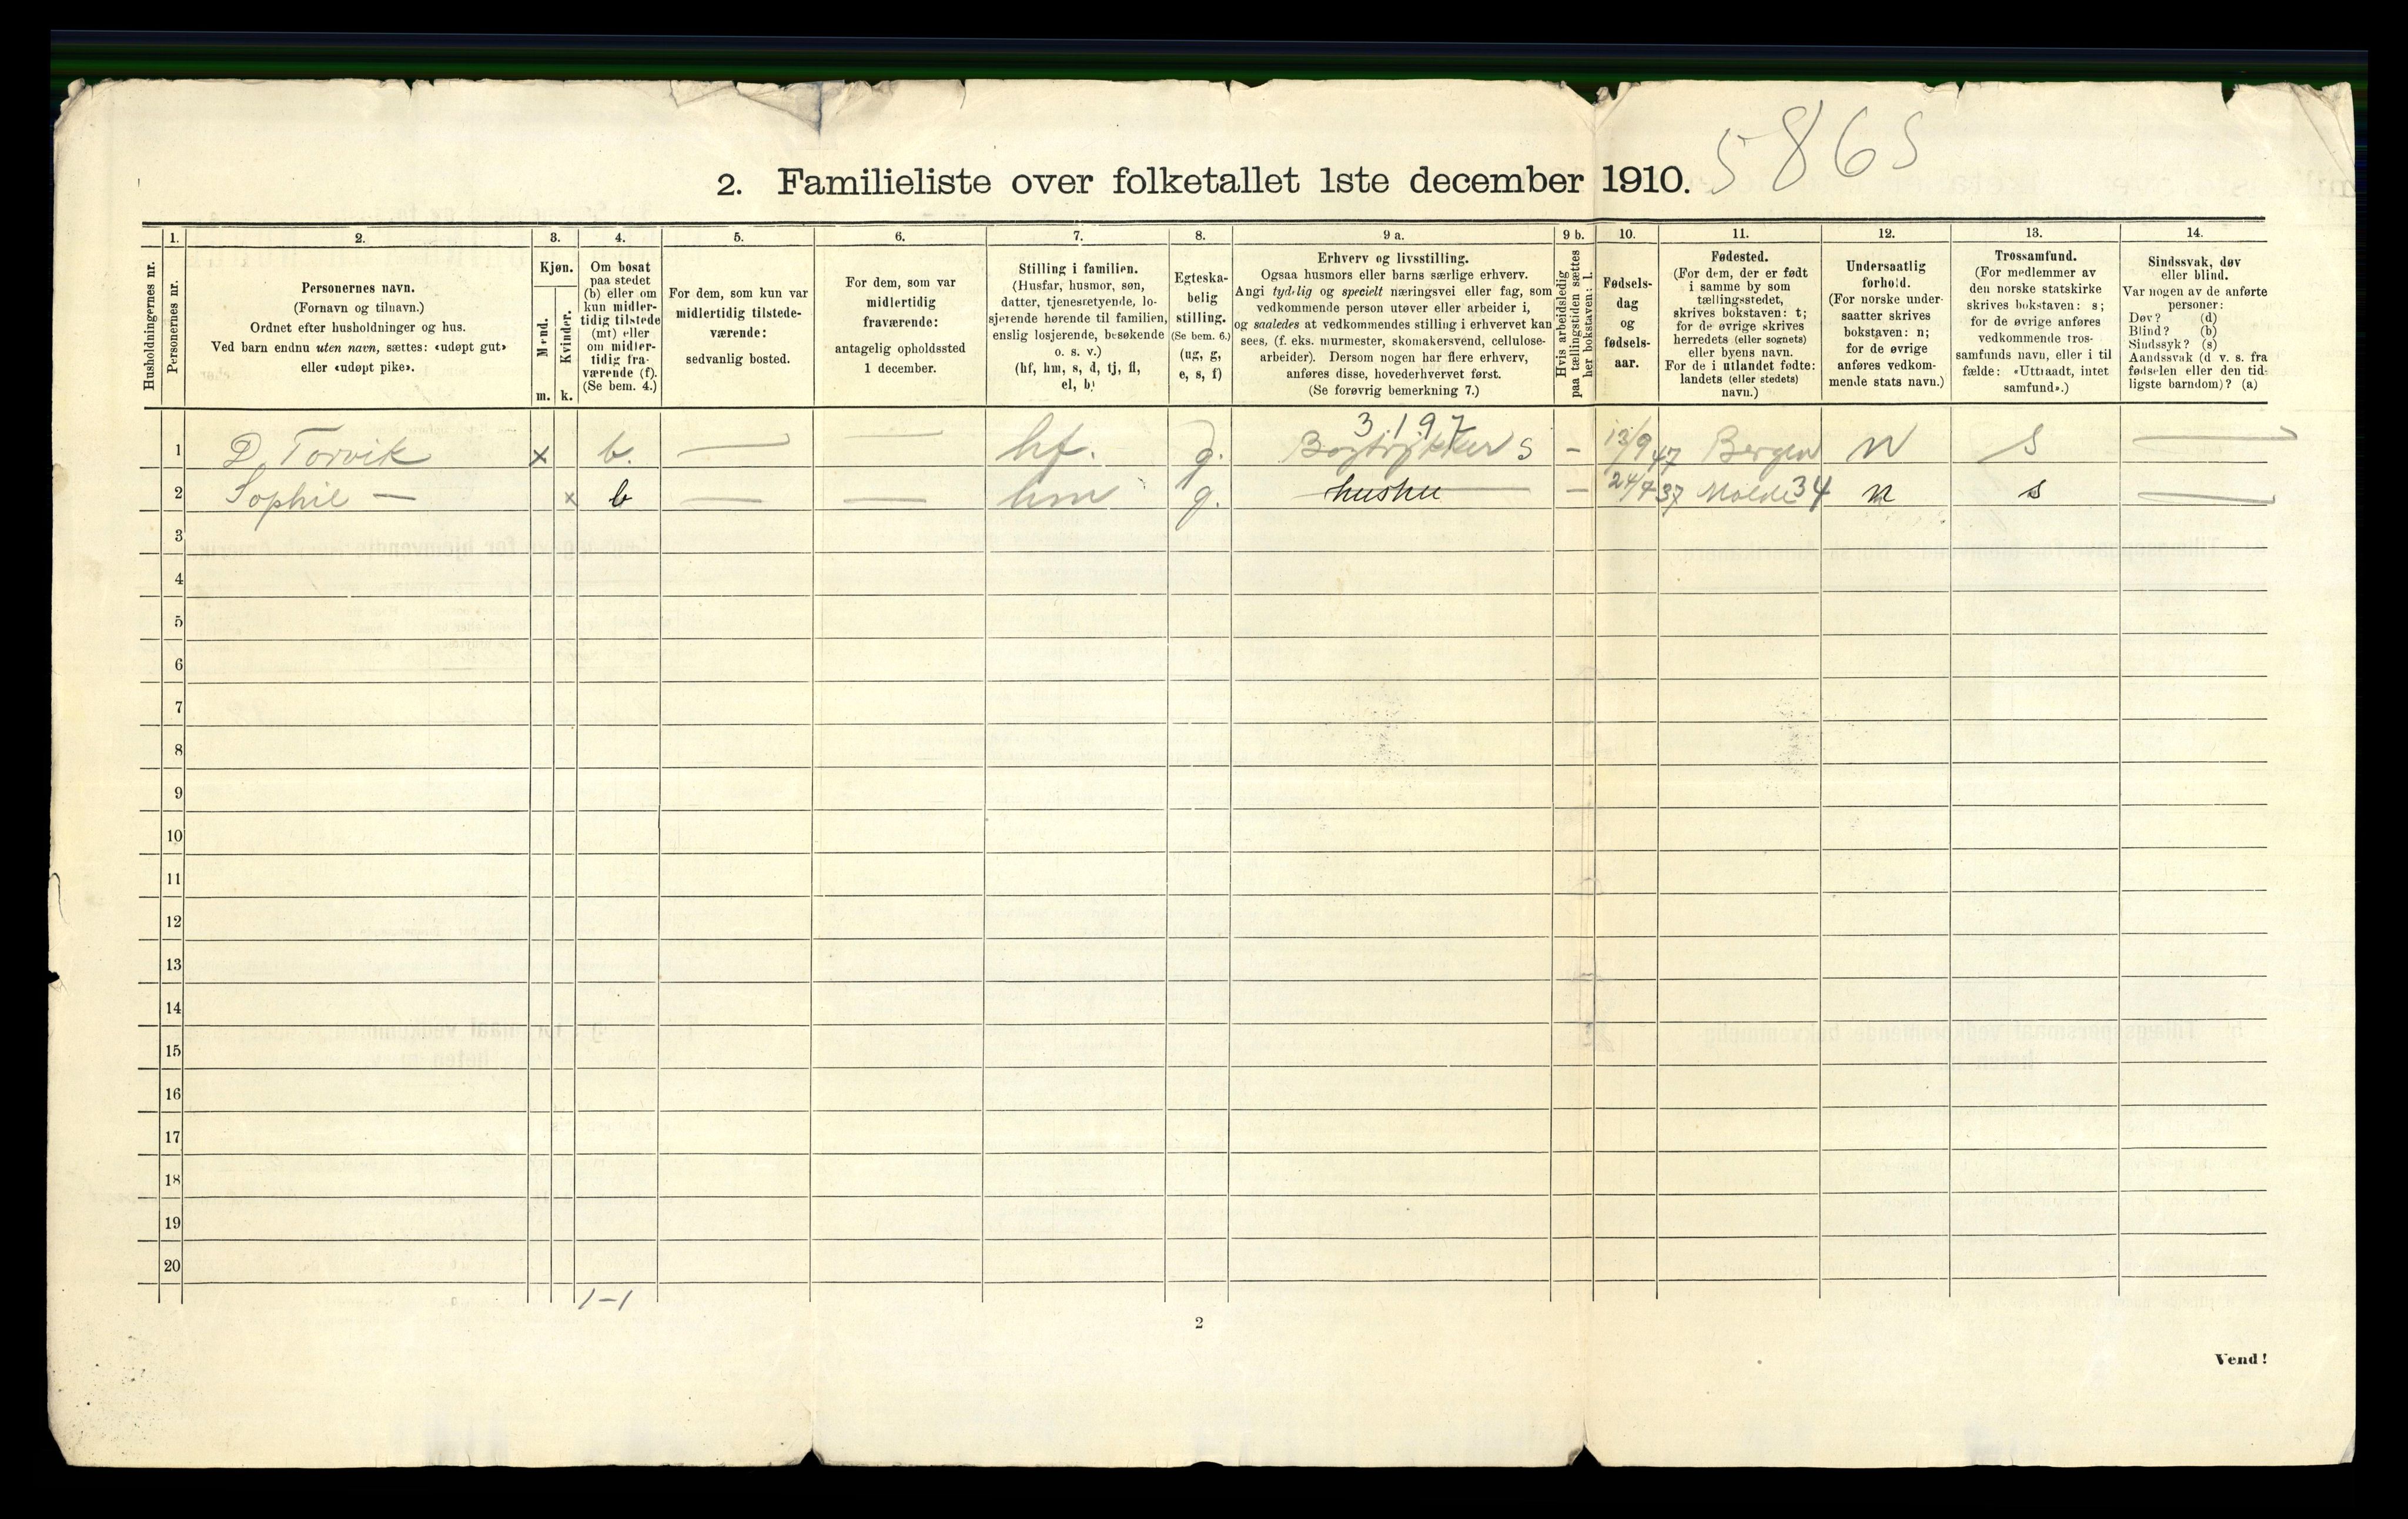 5865
2. Familieliste over folketallet 1ste december 1910.
Husholdningernes nr.
1.
Personernes nr.
2.
Personernes navn.
(Fornavn og tilnavn.)
Ordnet efter husholdninger og hus.
Ved barn endnu uten navn, sættes: «udøpt gut»
eller «udøpt pike».
3.
Kjøn.
Mænd.
Kvinder.
m.
k.
4.
Om bosat
paa stedet
(b) eller om
kun midler-
tidig tilstede
(mt) eller
om midler-
tidig fra-
værende (f).
(Se bem. 4.)
5.
For dem, som kun var
midlertidig tilstede-
værende:
sedvanlig bosted.
6.
For dem, som var
midlertidig
fraværende:
antagelig opholdssted
1 december.
7.
Stilling i familien.
(Husfar, husmor, søn,
datter, tjenestetyende, lo-
sjerende hørende til familien,
enslig losjerende, besøkende
o. s. v.)
(hf, hm, s, d, tj, fl,
el, b)
8.
Egteska-
belig
stilling.
(Se bem. 6.)
(ug, g,
e, s, f)
9 a.
Erhverv og livsstilling.
Ogsaa husmors eller barns særlige erhverv.
Angi tydelig og specielt næringsvei eller fag, som
vedkommende person utøver eller arbeider i,
og saaledes at vedkommendes stilling i erhvervet kan
sees, (f. eks. murmester, skomakersvend, cellulose-
arbeider). Dersom nogen har flere erhverv,
anføres disse, hovederhvervet først.
(Se forøvrig bemerkning 7.)
9 b.
Hvis arbeidsledig
paa tællingstiden sættes
her bokstaven: l.
10.
Fødsels-
dag
og
fødsels-
aar.
11.
Fødested.
(For dem, der er født
i samme by som
tællingsstedet,
skrives bokstaven: t;
for de øvrige skrives
herredets (eller sognets)
eller byens navn.
For de i utlandet fødte:
landets (eller stedets)
navn.)
12.
Undersaatlig
forhold.
(For norske under-
saatter skrives
bokstaven: n;
for de øvrige
anføres vedkom-
mende stats navn.)
13.
Trossamfund.
(For medlemmer av
den norske statskirke
skrives bokstaven: s;
for de øvrige anføres
vedkommende tros-
samfunds navn, eller i til
fælde: «Uttraadt, intet
samfund».)
14.
Sindssvak, døv
eller blind.
Var nogen av de anførte
personer:
Døv? (d)
Blind? (b)
Sindssyk? (s)
Aandssvak (d v. s. fra
fødselen eller den tid-
ligste barndom)? (a)
3.197
1 D. Torvik x b. — — hf. g. Bogtrykker S – 13/9 47 Bergen N S —
2 Sophie — x b — — hm g. hushu – 24/7 37 Molde 34 n s —
3
4
5
6
7
8
9
10
11
12
13
14
15
16
17
18
19
20
1–1
2
Vend!